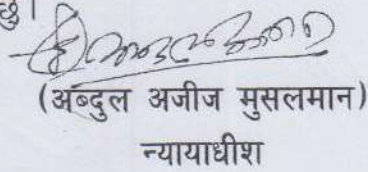 छु।
(अब्दुल अजीज मुसलमान)
न्यायाधीश